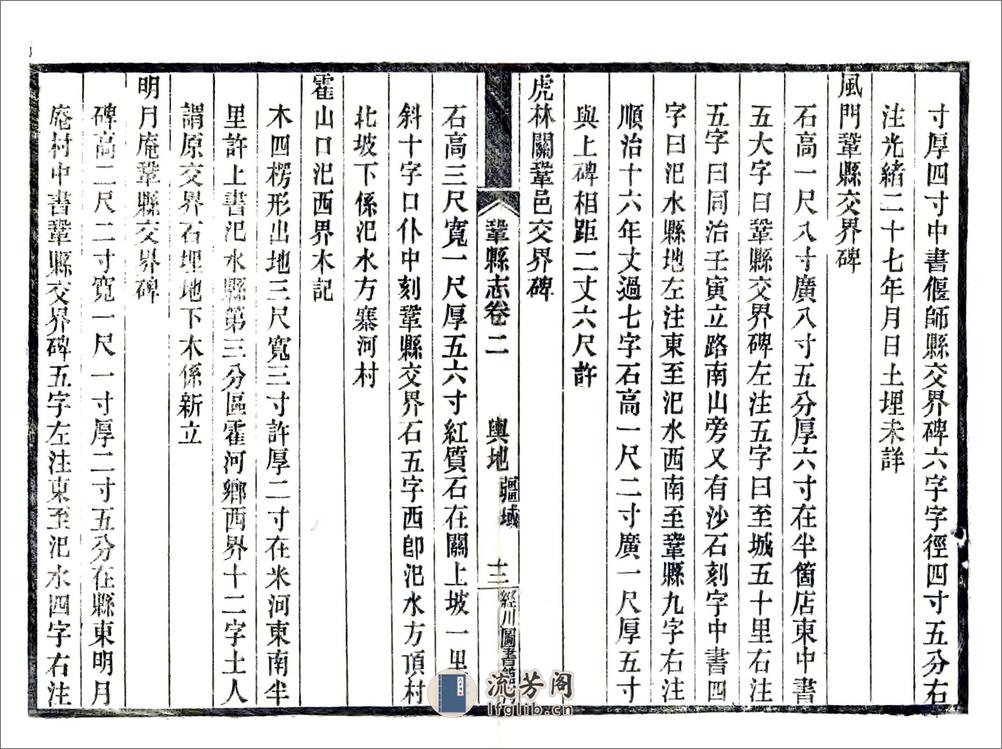 寸厚四寸中書偃師縣交界碑六字字徑四寸五分右
注光緒二十七年月日土埋未詳
風門鞏縣交界碑
石高一尺八寸廣八寸五分厚六寸在半箇店東中書
五大字曰鞏縣交界碑左注五字曰至城五十里右注
五字曰同治壬寅立路南山旁又有沙石刻字中書四
字曰汜水縣地左注東至汜水西南至鞏縣九字右注
順治十六年丈過七字石高一尺二寸廣一尺厚五寸
與上碑相距二丈六尺許
虎林關鞏邑交界碑
鞏縣志卷二 輿地 疆域 十二 經川圖書館
石高三尺寬一尺厚五六寸紅質石在關上坡一里
斜十字口仆中刻鞏縣交界石五字西卽汜水方頂村
北坡下係汜水方寨河村
霍山口汜西界木記
木四楞形出地三尺寬三寸許厚二寸在米河東南半
里許上書汜水縣第三分區霍河鄉西界十二字土人
謂原交界石埋地下木係新立
明月庵鞏縣交界碑
碑高二尺二寸寬一尺一寸厚二寸五分在縣東明月
庵村中書鞏縣交界碑五字左注東至汜水四字右注
流芳阁
lfglib.cn